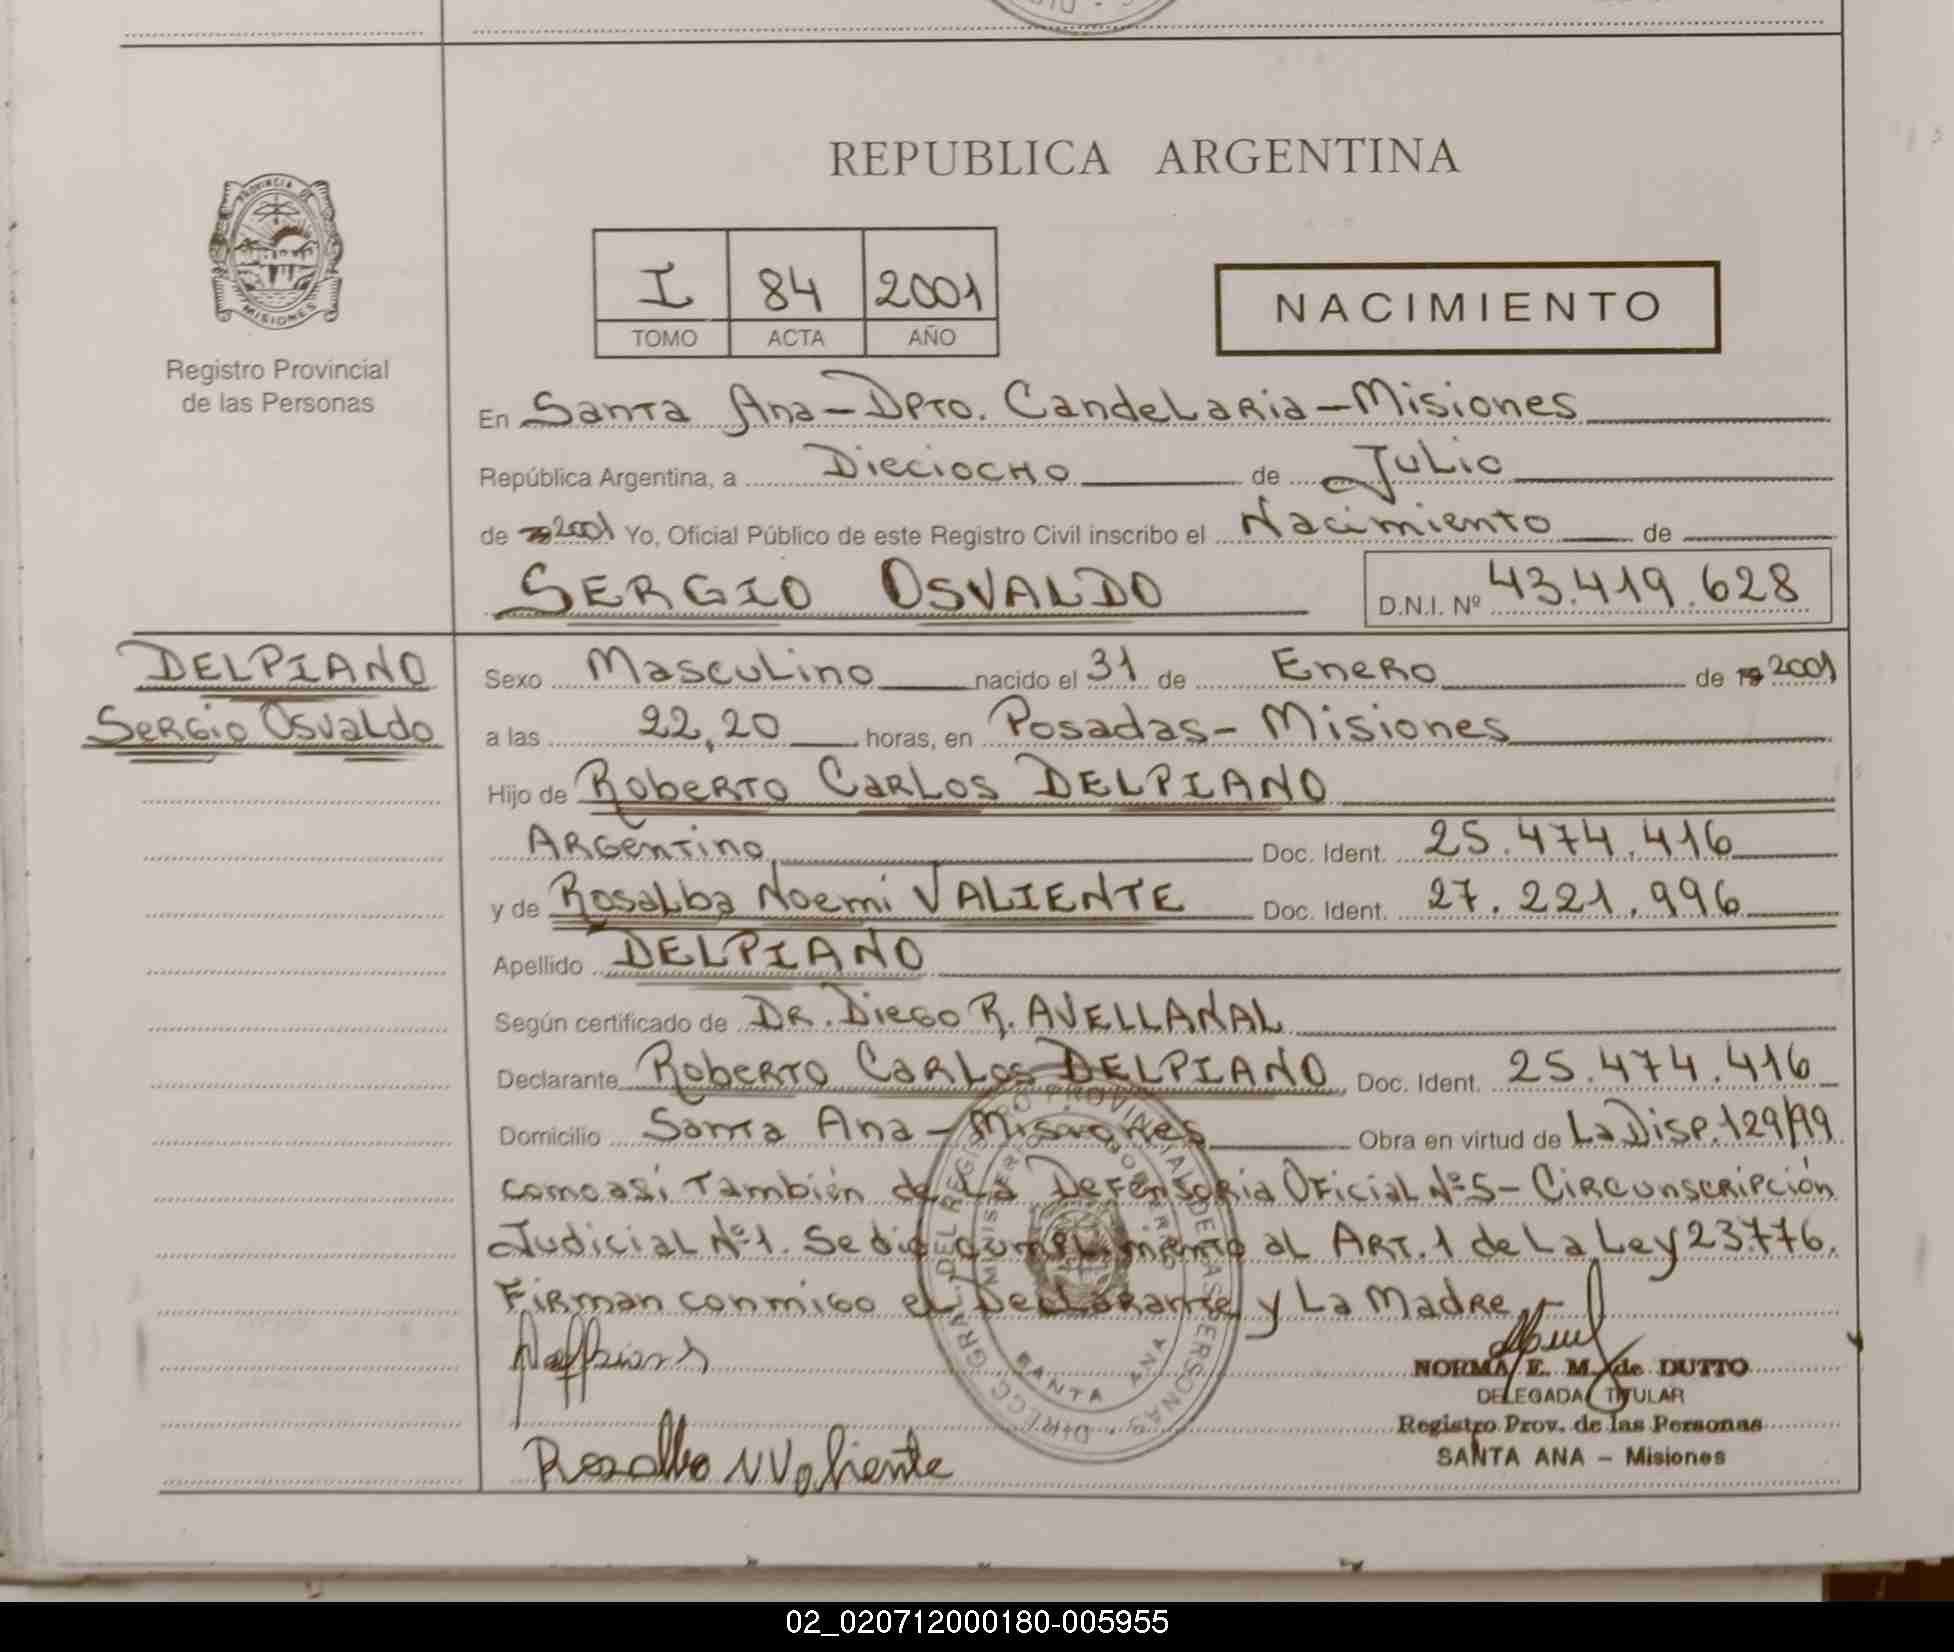 REPUBLICA ARGENTINA
PROVINCIA DE
MISIONES
Registro Provincial
de las Personas
I 84 2001
TOMO ACTA AÑO
NACIMIENTO
En Santa Ana - Dpto. Candelaria - Misiones
República Argentina, a Dieciocho de Julio
de 2001 Yo, Oficial Público de este Registro Civil inscribo el Nacimiento de
SERGIO OSVALDO D.N.I. Nº 43.419.628
DELPIANO
Sergio Osvaldo
Sexo Masculino nacido el 31 de Enero de 2001
a las 22,20 horas, en Posadas - Misiones
Hijo de Roberto Carlos DELPIANO
Argentino, Doc. Ident. 25.474.416
y de Rosalba Noemi VALIENTE Doc. Ident. 27.221.996
Apellido DELPIANO
Según certificado de Dr. Diego R. AVELLANAL
Declarante Roberto Carlos DELPIANO Doc. Ident. 25.474.416
Domicilio Santa Ana - Misiones Obra en virtud de La Disp. 129/99
como asi también de la Defensoria Oficial Nº 5 - Circunscripción
Judicial Nº 1. Se dio cumplimiento al Art. 1 de La Ley 23.776.
Firman conmigo el Declarante y La Madre.-
Rosalba N Valiente
DIRECC. GRAL. DEL REGISTRO PROVINCIAL DE LAS PERSONAS
MINISTERIO GOBIERNO
SANTA ANA
NORMA E. M. de DUTTO
DELEGADA TITULAR
Registro Prov. de las Personas
SANTA ANA - Misiones
02_020712000180-005955